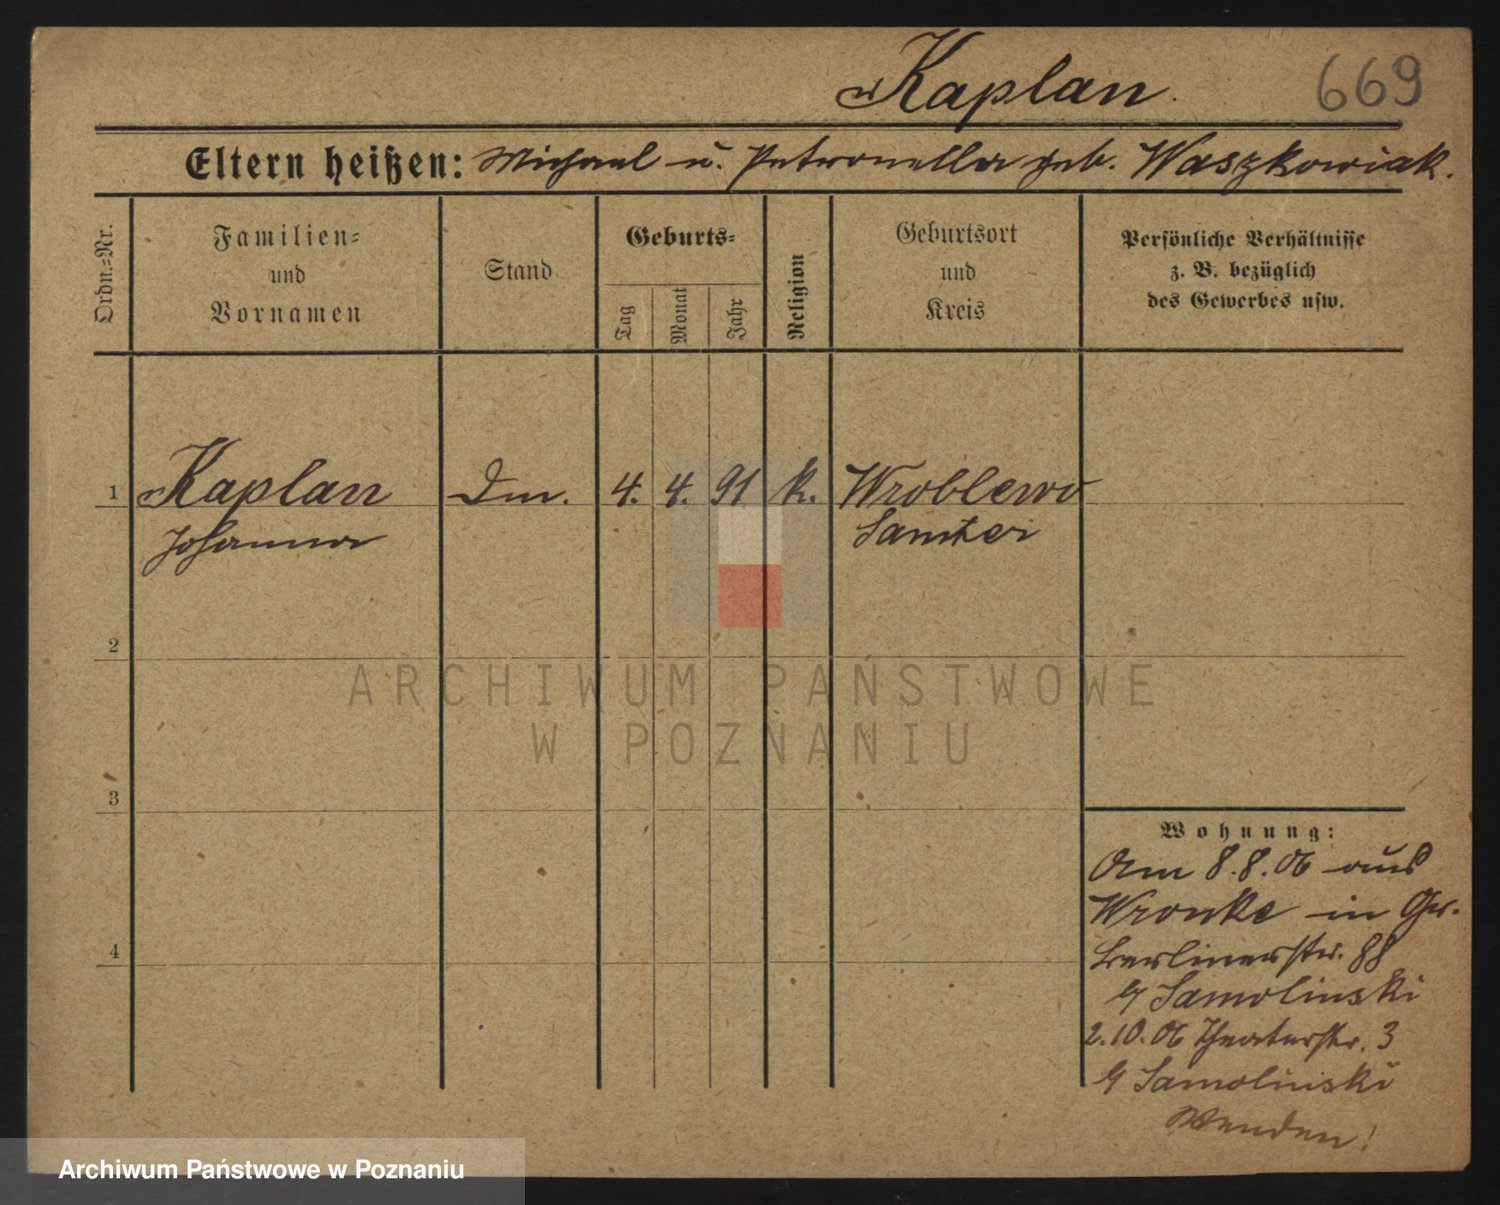 Kaplan.
669
Eltern heißen: Michael u. Petronella geb. Waszkowiak.
Ordn.=Nr.
Familien=
und
Vornamen
Stand
Geburts=
Tag
Monat
Jahr
Religion
Geburtsort
und
Kreis
Persönliche Verhältnisse
z. B. bezüglich
des Gewerbes usw.
1 Kaplan Dm. 4. 4. 91 k. Wroblewo
Johanna Samter
2
ARCHIWUM PAŃSTWOWE
W POZNANIU
3
Wohnung:
Am 8.8.06 aus
Wronke in Gr.
Berlinerstr. 88
b/ Samolinski
4
2.10.06 Theaterstr. 3
b/ Samolinski
Wenden!
Archiwum Państwowe w Poznaniu